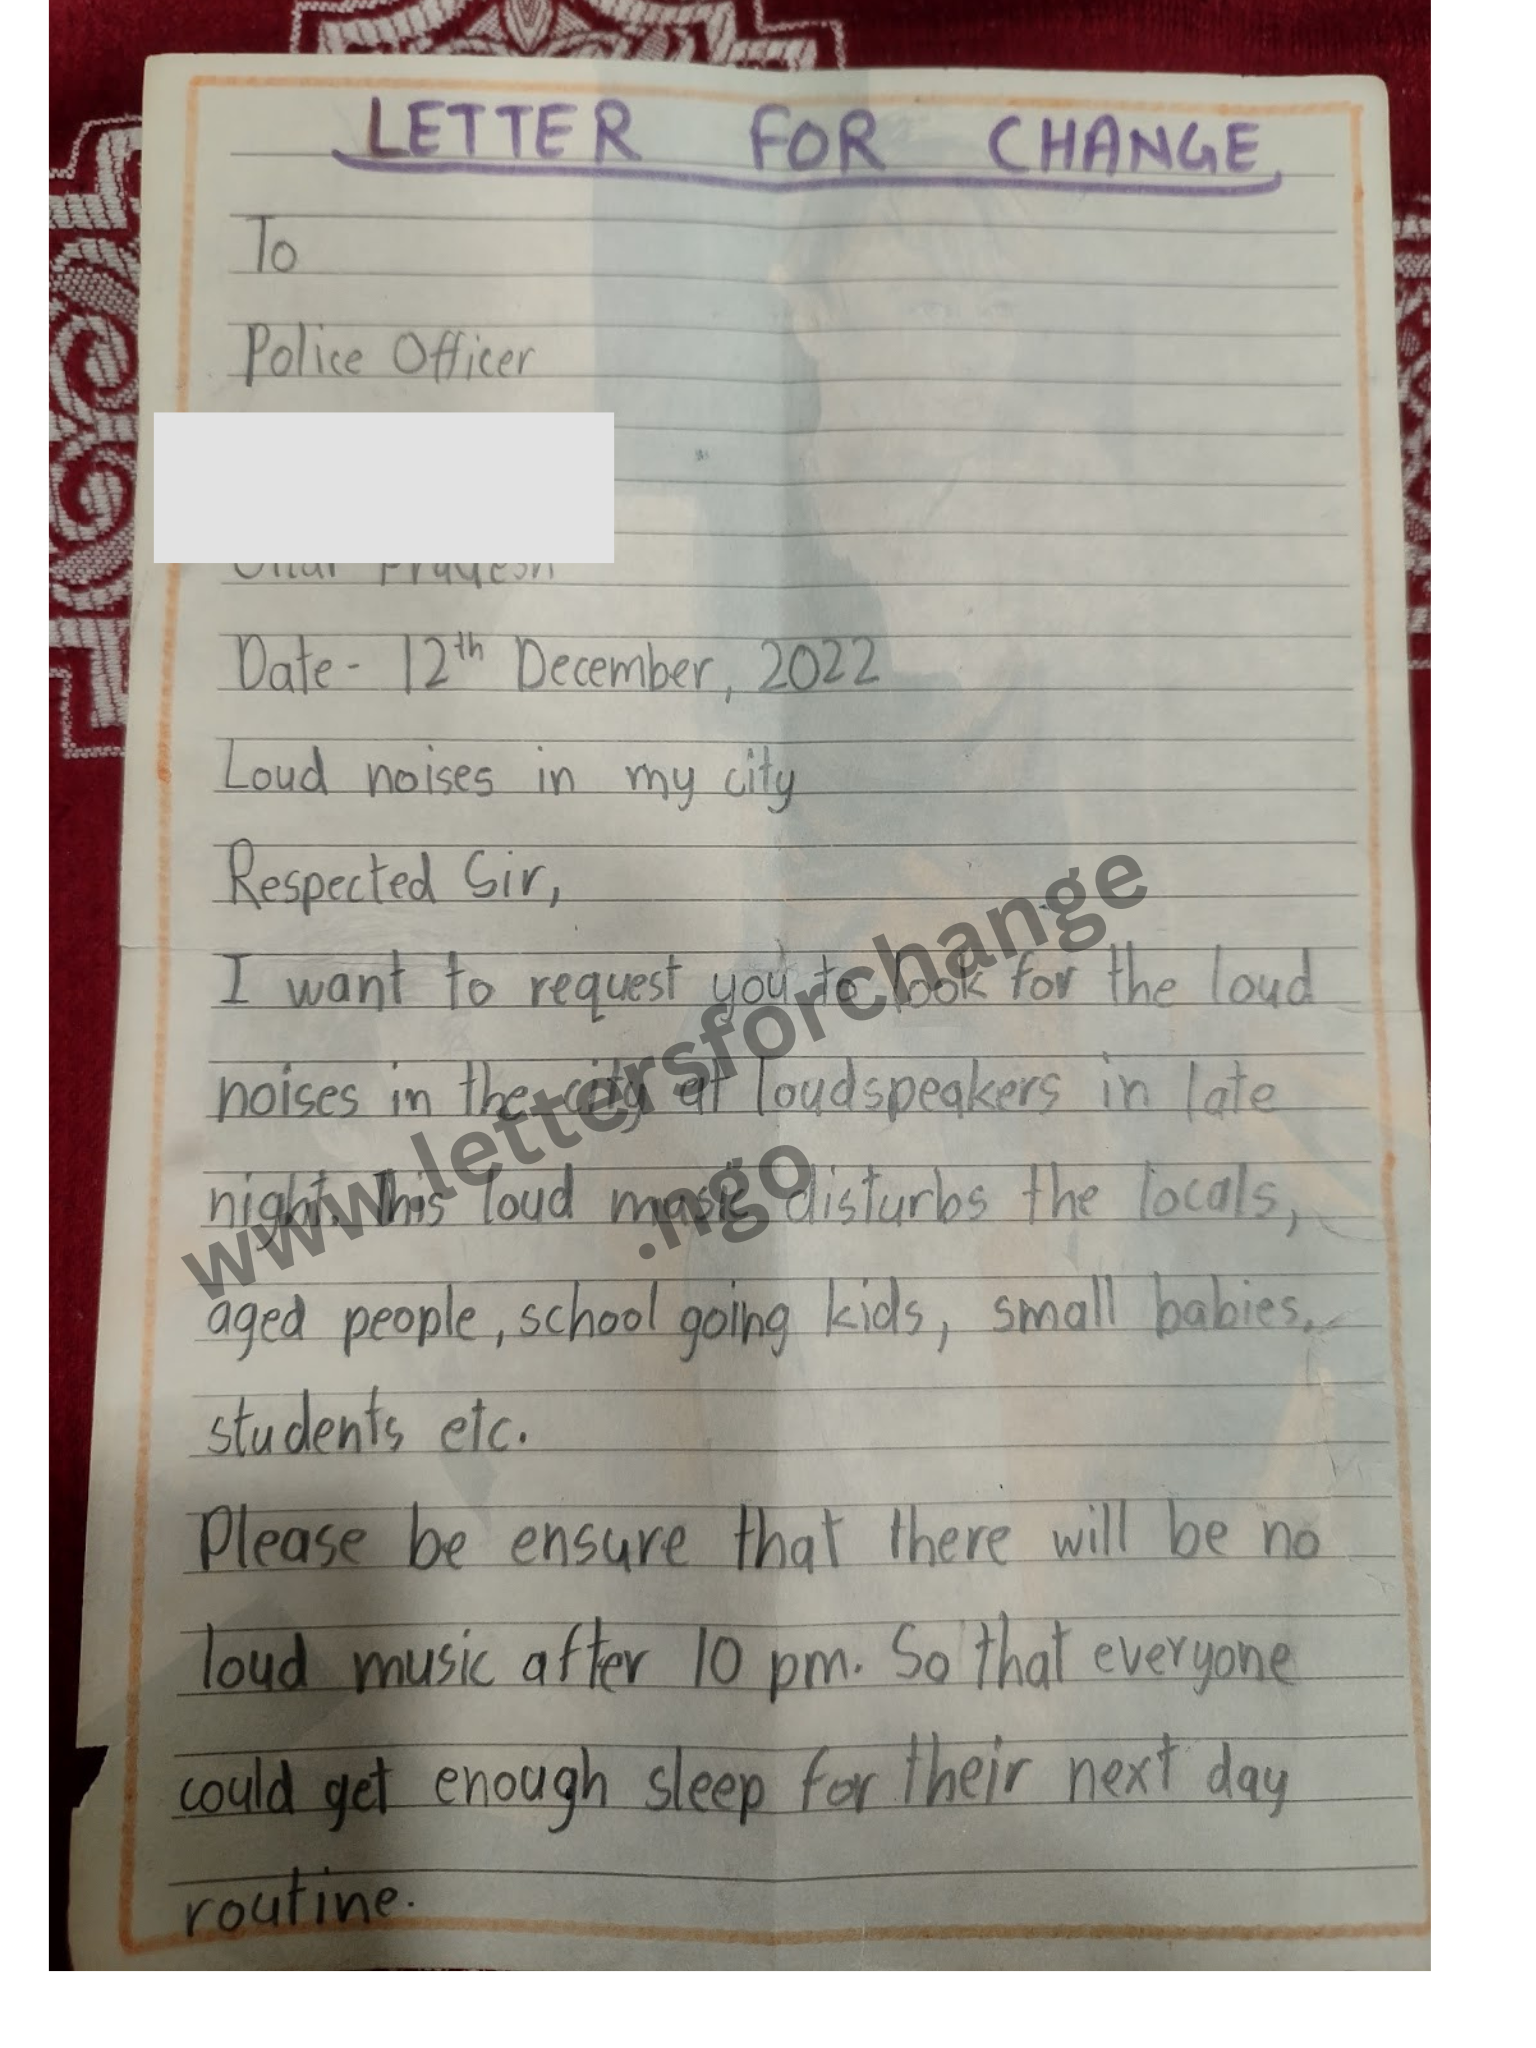 LETTER FOR CHANGE
To
Police Officer
Uttar Pradesh
Date - 12th December, 2022
Loud noises in my city
Respected Sir,
I want to request you to look for the loud
noises in the city at loudspeakers in late
night. This loud music disturbs the locals,
aged people, school going kids, small babies,
students etc.
Please be ensure that there will be no
loud music after 10 pm. So that everyone
could get enough sleep for their next day
routine.
www.lettersforchange
.ngo